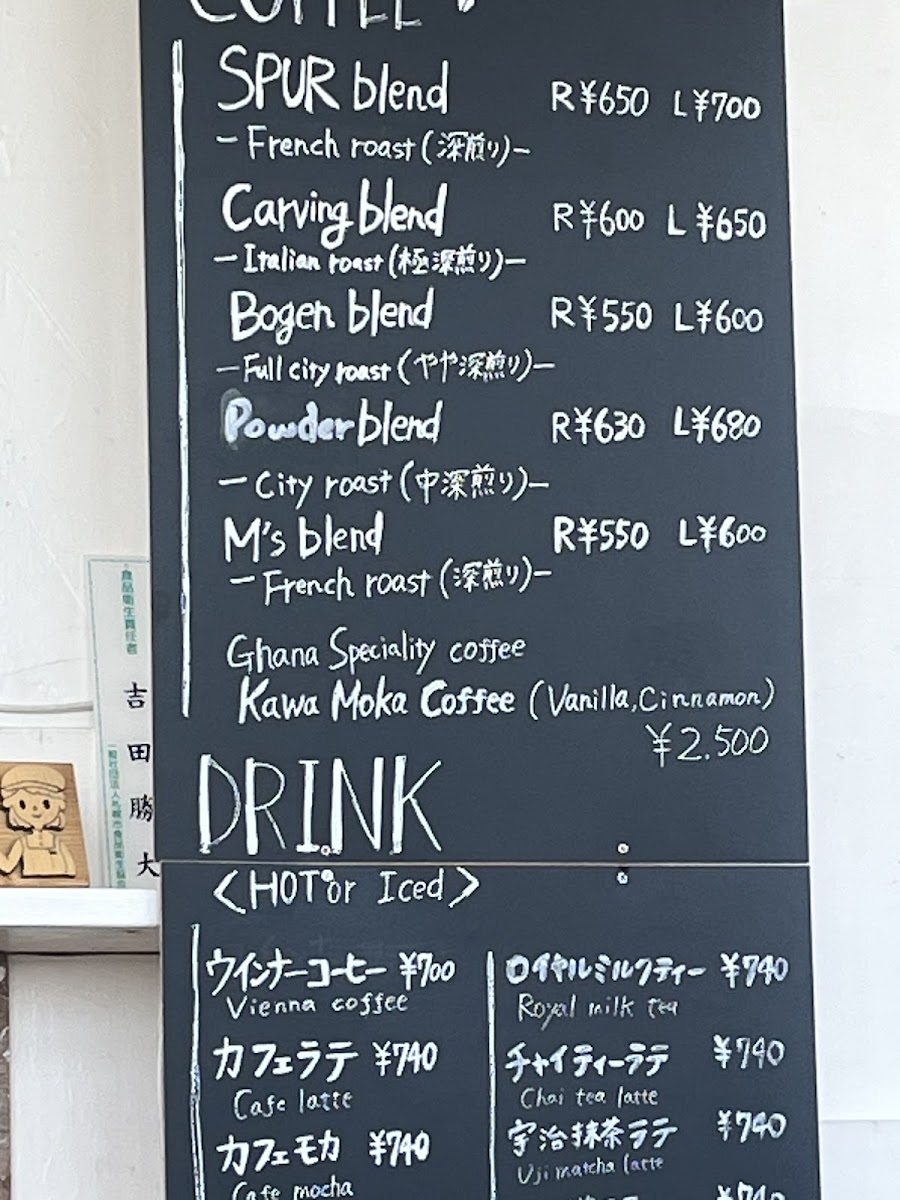 COFFEE
SPUR blend R¥650 L¥700
－French roast(深煎り)－
Carving blend R¥600 L¥650
－Italian roast(極深煎り)－
Bogen blend R¥550 L¥600
－Full city roast(やや深煎り)－
Powder blend R¥630 L¥680
－City roast(中深煎り)－
M's blend R¥550 L¥600
－French roast(深煎り)－
Ghana Speciality coffee
Kawa Moka Coffee (Vanilla,Cinnamon)
¥2.500
DRINK
<HOT or Iced>
ウインナーコーヒー ¥700
Vienna coffee
カフェラテ ¥740
Cafe latte
カフェモカ ¥740
Cafe mocha
ロイヤルミルクティー ¥740
Royal milk tea
チャイティーラテ ¥740
Chai tea latte
宇治抹茶ラテ ¥740
Uji matcha latte
¥740
食品衛生責任者
吉田勝大
一般社団法人札幌市食品衛生協会